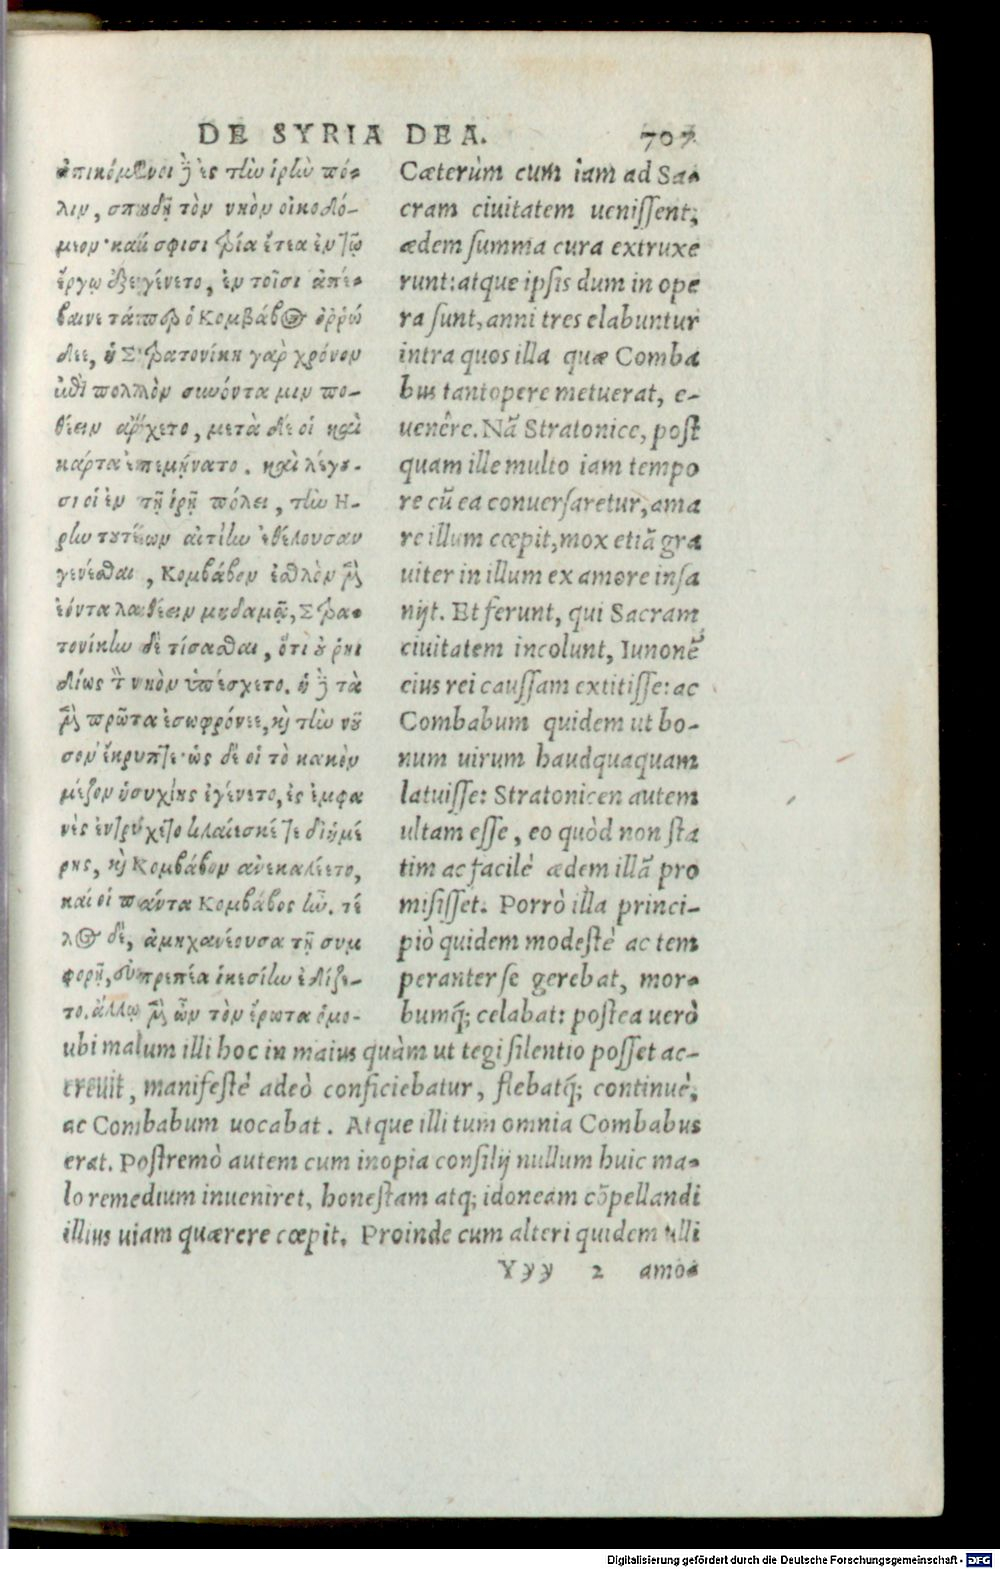 DE SYRIA DEA. 707
ἀπικόμενοι δὲ ἐς τὴν ἱρὴν πό-
λιν, σπουδῇ τὸν νηὸν οἰκοδό-
μεον· καί σφισι τρία ἔτεα ἐν τῷ
ἔργῳ ἐξεγένετο, ἐν τοῖσι ἀπέ-
βαινε τάπερ ὁ Κομβάβος ὀρρώ
δεε, ἡ Στρατονίκη γὰρ χρόνον
ἐπὶ πολλὸν συνόντα μιν πο-
θέειν ἄρχετο, μετὰ δέ οἱ καὶ
κάρτα ἐπεμήνατο. καὶ λέγου-
σι οἱ ἐν τῇ ἱρῇ πόλει, τὴν Η-
ρην τουτέων αἰτίην ἐθέλουσαν
γενέσθαι, Κομβάβον ἐσθλὸν μὲν
ἐόντα λαθέειν μηδαμᾶ, Στρα-
τονίκην δὲ τίσασθαι, ὅτι οὐ ρηι
δίως τὸν νηὸν ὑπέσχετο. ἡ δὲ τὰ
μὲν πρῶτα ἐσωφρόνεε, καὶ τὴν νοῦ
σον ἔκρυπτε· ὡς δέ οἱ τὸ κακὸν
μέζον ἡσυχίης ἐγένετο, ἐς ἐμφα
νὲς ἐντρύχετο κλαίεσκέ τε δι' ἡμέ
ρης, καὶ Κομβάβον ἀνεκαλέετο,
καί οἱ πάντα Κομβάβος ἦν. τέ
λος δὲ, ἀμηχανέουσα τῇ συμ
φορῇ, εὐπρεπέα ἱκεσίην ἐδίζε-
το. ἄλλῳ μὲν ὦν τὸν ἔρωτα ὁμο-
Cæterùm cum iam ad Sa-
cram ciuitatem uenissent,
ædem summa cura extruxe
runt: atque ipsis dum in ope
ra sunt, anni tres elabuntur
intra quos illa quæ Comba
bus tantopere metuerat, e-
uenêre. Nã Stratonice, post
quam ille multo iam tempo
re cũ ea conuersaretur, ama
re illum cœpit, mox etiã gra
uiter in illum ex amore insa
nijt. Et ferunt, qui Sacram
ciuitatem incolunt, Iunonẽ
eius rei caussam extitisse: ac
Combabum quidem ut bo-
num uirum haudquaquam
latuisse: Stratonicen autem
ultam esse, eo quòd non sta
tim ac facilè ædem illã pro
misisset. Porrò illa princi-
piò quidem modestè ac tem
peranter se gerebat, mor-
bumq́; celabat: postea uerò
ubi malum illi hoc in maius quàm ut tegi silentio posset ac-
creuit, manifestè adeò conficiebatur, flebatq́; continuè,
ac Combabum uocabat. Atque illi tum omnia Combabus
erat. Postremò autem cum inopia consilij nullum huic ma-
lo remedium inueniret, honestam atq; idoneam cõpellandi
illius uiam quærere cœpit. Proinde cum alteri quidem ulli
Yyy 2 amo-
Digitalisierung gefördert durch die Deutsche Forschungsgemeinschaft - DFG